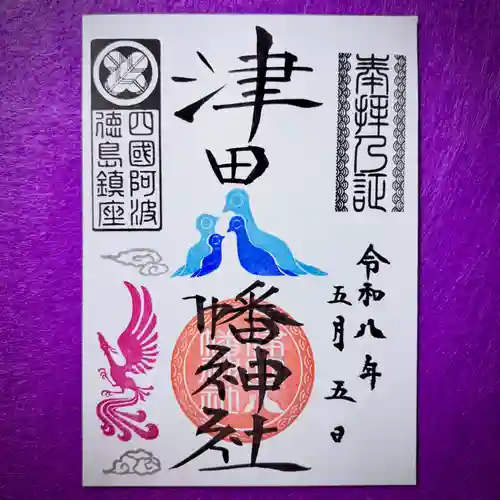 奉拝乃証
津田
幡神社
令和八年
五月五日
四國阿波
徳島鎮座